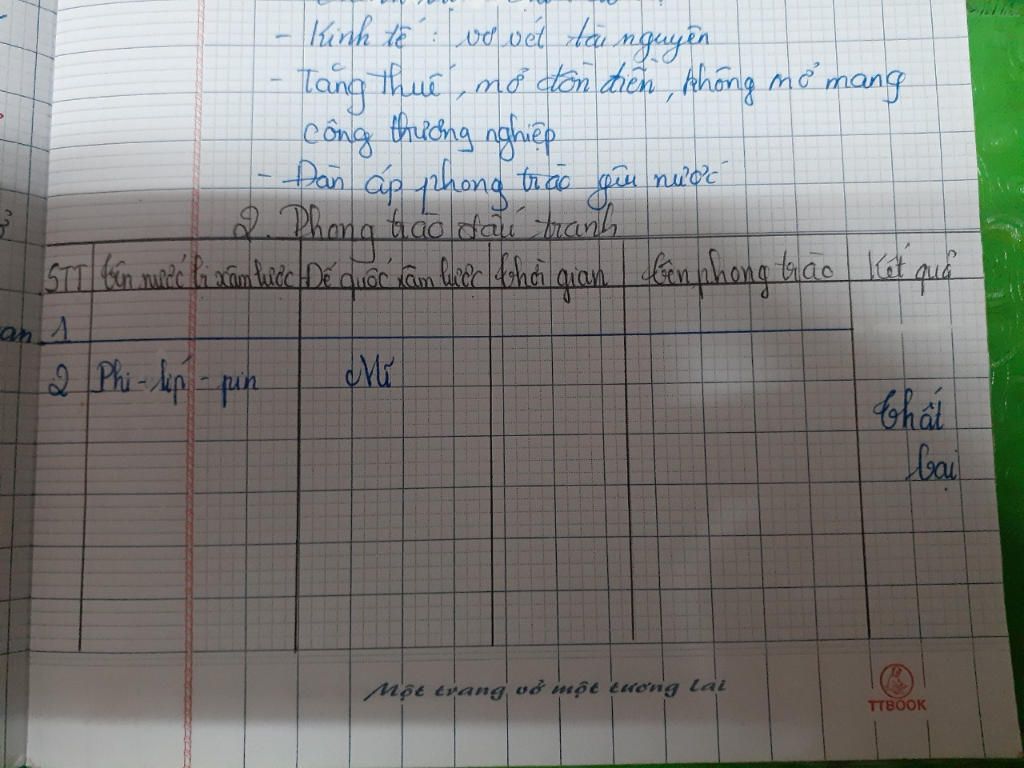 - Kinh tế : vơ vét tài nguyên
- Tăng thuế, mở đồn điền, không mở mang
công thương nghiệp
- Đàn áp phong trào yêu nước
2. Phong trào đấu tranh
STT tên nước bị xâm lược Đế quốc xâm lược thời gian tên phong trào Kết quả
an 1
2 Phi-líp-pin Mĩ
thất
bại
Một trang vở một tương lai
TTBOOK